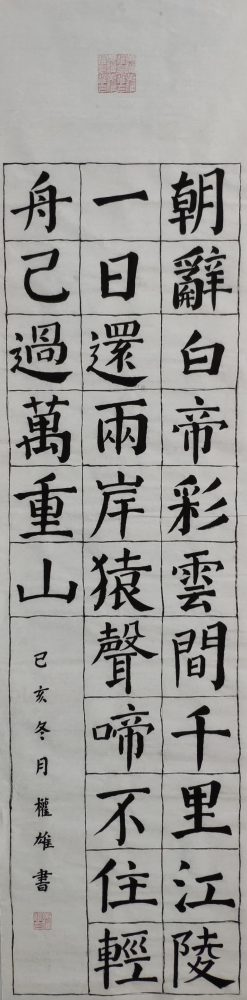 朝辭白帝彩雲間千里江陵
一日還兩岸猿聲啼不住輕
舟己過萬重山
己亥冬月權雄書